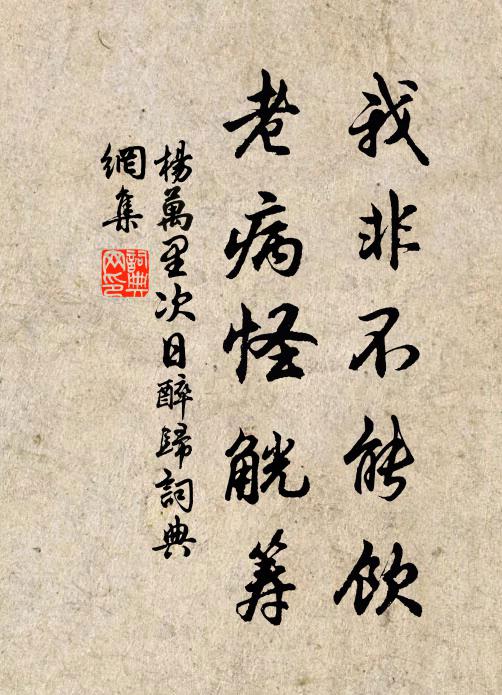 我非不能飲
老病怪觥筹
楊萬里次日醉歸詞典
網集
詞典
网印